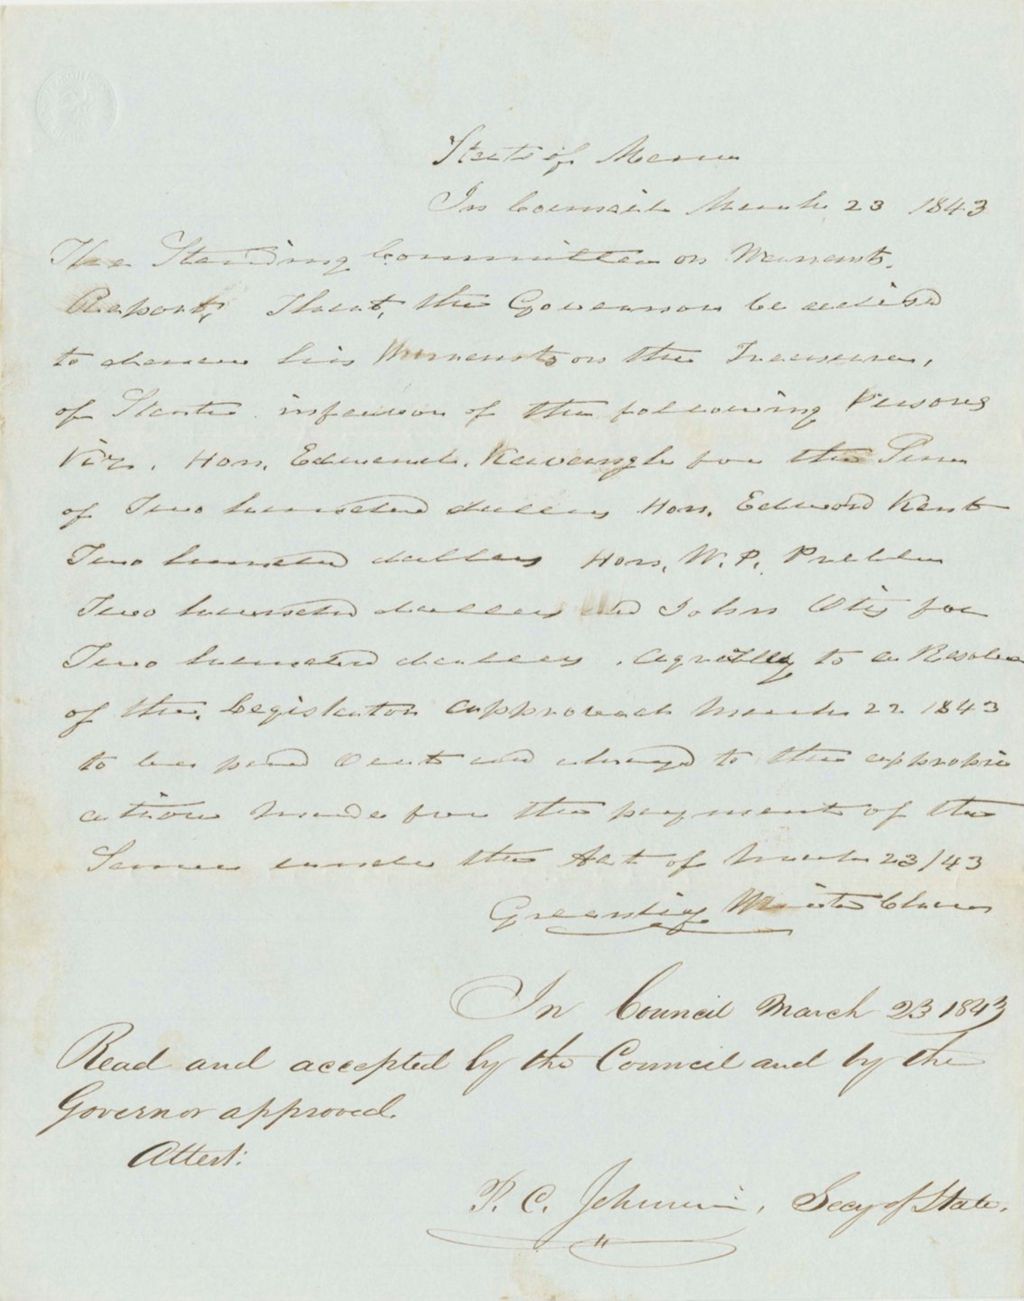 State of Maine
In Council March 23 1843
The Standing Committee on Warrants,
Report, That, the Governor be advised
to draw his Warrants on the Treasurer,
of State in favor of the following Persons
Viz. Hon. Edward. Kavangh for the Sum
of Two hundred dollars Hon. Edward Kent
Two hundred dollars Hon. W. P. Preble
Two hundred dollars and John Otis for
Two hundred dollars, agreeably to a Resolve
of the Legislature approved March 22 1843
to be paid out and charged to the appropri
ation made for the payment of the
Same under the Act of March 23/43
Greenlief White Chair
In Council March 23 1843
Read and accepted by the Council and by the
Governor approved.
Attest:
P. C. Johnson, Secy of State.